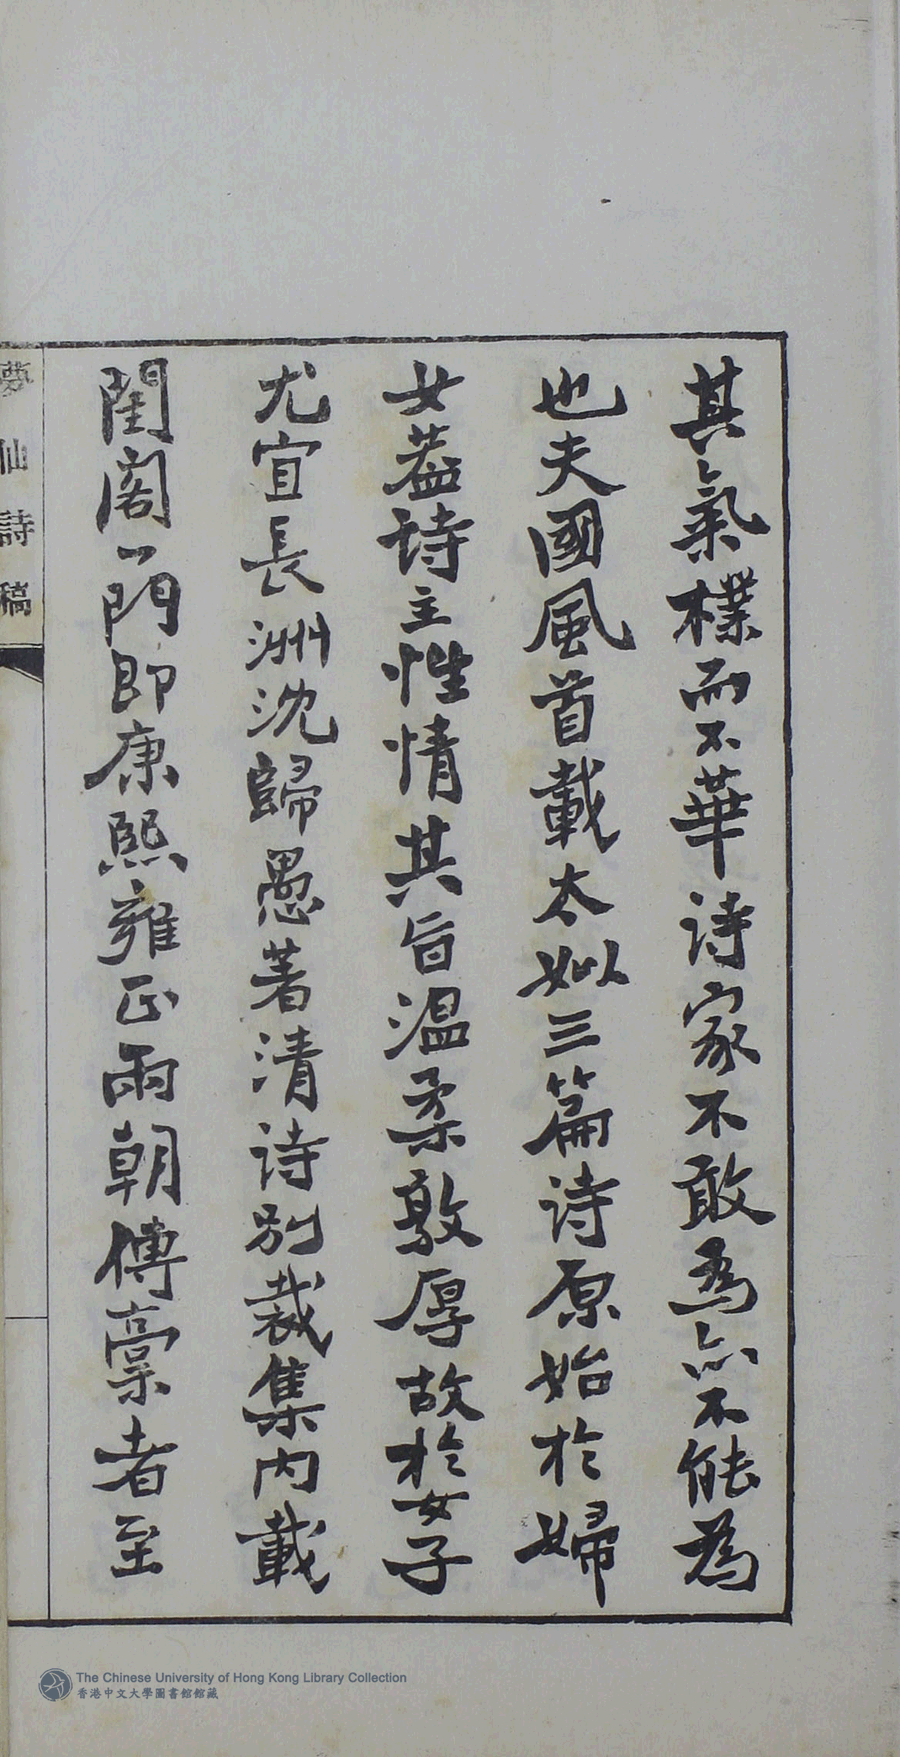 其氣樸而不華詩家不敢為亦不能為
也夫國風首載太姒三篇詩原始於婦
女葢詩主性情其旨溫柔敦厚故於女子
尤宜長洲沈歸愚著清詩別裁集內載
閨閣一門即康熙雍正兩朝傳稾者至
夢仙詩稿
The Chinese University of Hong Kong Library Collection
香港中文大學圖書館館藏